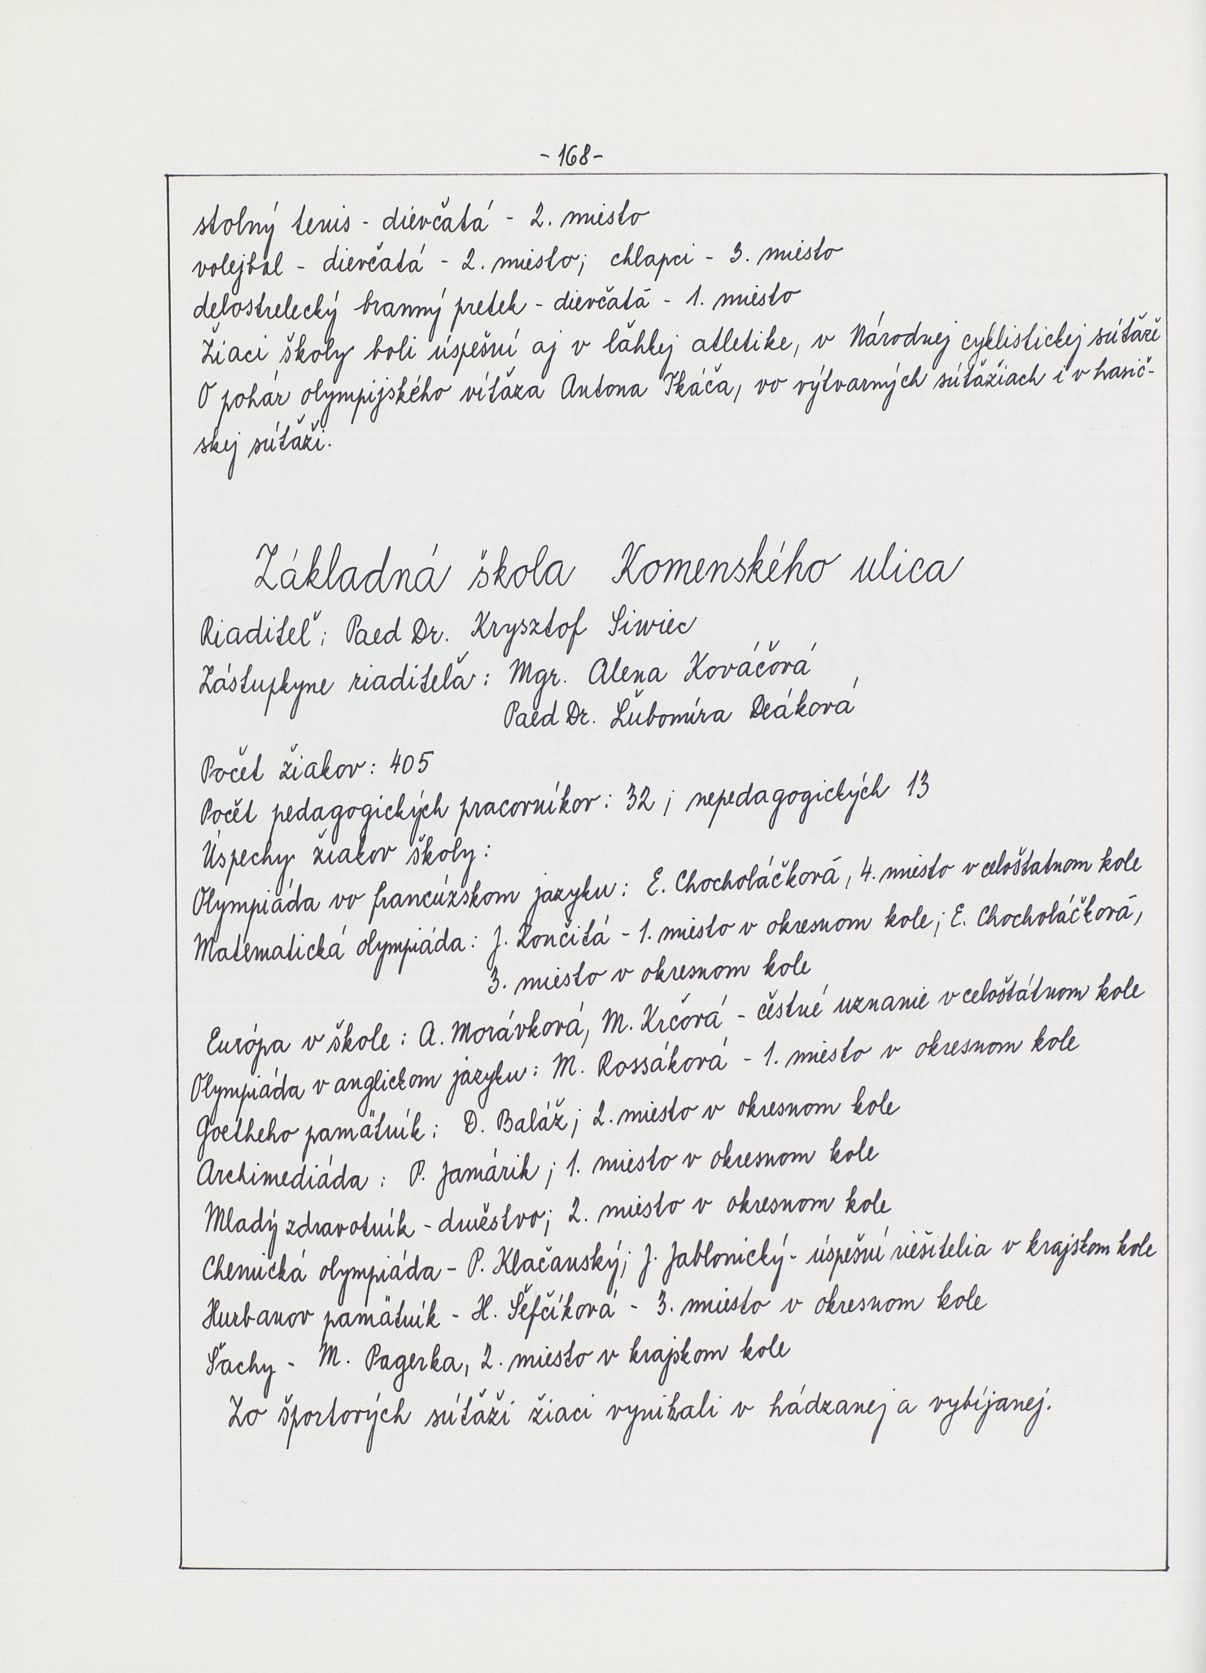 - 168 -
stolný tenis - dievčatá - 2. miesto
volejbal - dievčatá - 2. miesto; chlapci - 3. miesto
delostrelecký branný pretek - dievčatá - 1. miesto
Žiaci školy boli úspešní aj v ľahkej atletike, v Národnej cyklistickej súťaži
O pohár olympijského víťaza Antona Tkáča, vo výtvarných súťažiach i v hasič-
skej súťaži.
Základná škola Komenského ulica
Riaditeľ: Paed Dr. Krysztof Siwiec
Zástupkyne riaditeľa: Mgr. Alena Kováčová
Paed Dr. Ľubomíra Deáková
Počet žiakov: 405
Počet pedagogických pracovníkov: 32; nepedagogických 13
Úspechy žiakov školy:
Olympiáda vo francúzskom jazyku: E. Chocholáčková, 4. miesto v celoštatnom kole
Matematická olympiáda: J. Lončitá - 1. miesto v okresnom kole; E. Chocholáčková,
3. miesto v okresnom kole
Európa v škole: A. Morávková, M. Krčová - čestné uznanie v celoštátnom kole
Olympiáda v anglickom jazyku: M. Rossáková - 1. miesto v okresnom kole
Goetheho pamätník: D. Baláž; 2. miesto v okresnom kole
Archimediáda: P. Jamárik; 1. miesto v okresnom kole
Mladý zdravotník - družstvo; 2. miesto v okresnom kole
Chemická olympiáda - P. Klačanský; J. Jablonický - úspešní riešitelia v krajskom kole
Hurbanov pamätník - H. Šefčíková - 3. miesto v okresnom kole
Šachy - M. Pagerka, 2. miesto v krajskom kole
Zo športových súťaží žiaci vynikali v hádzanej a vybíjanej.